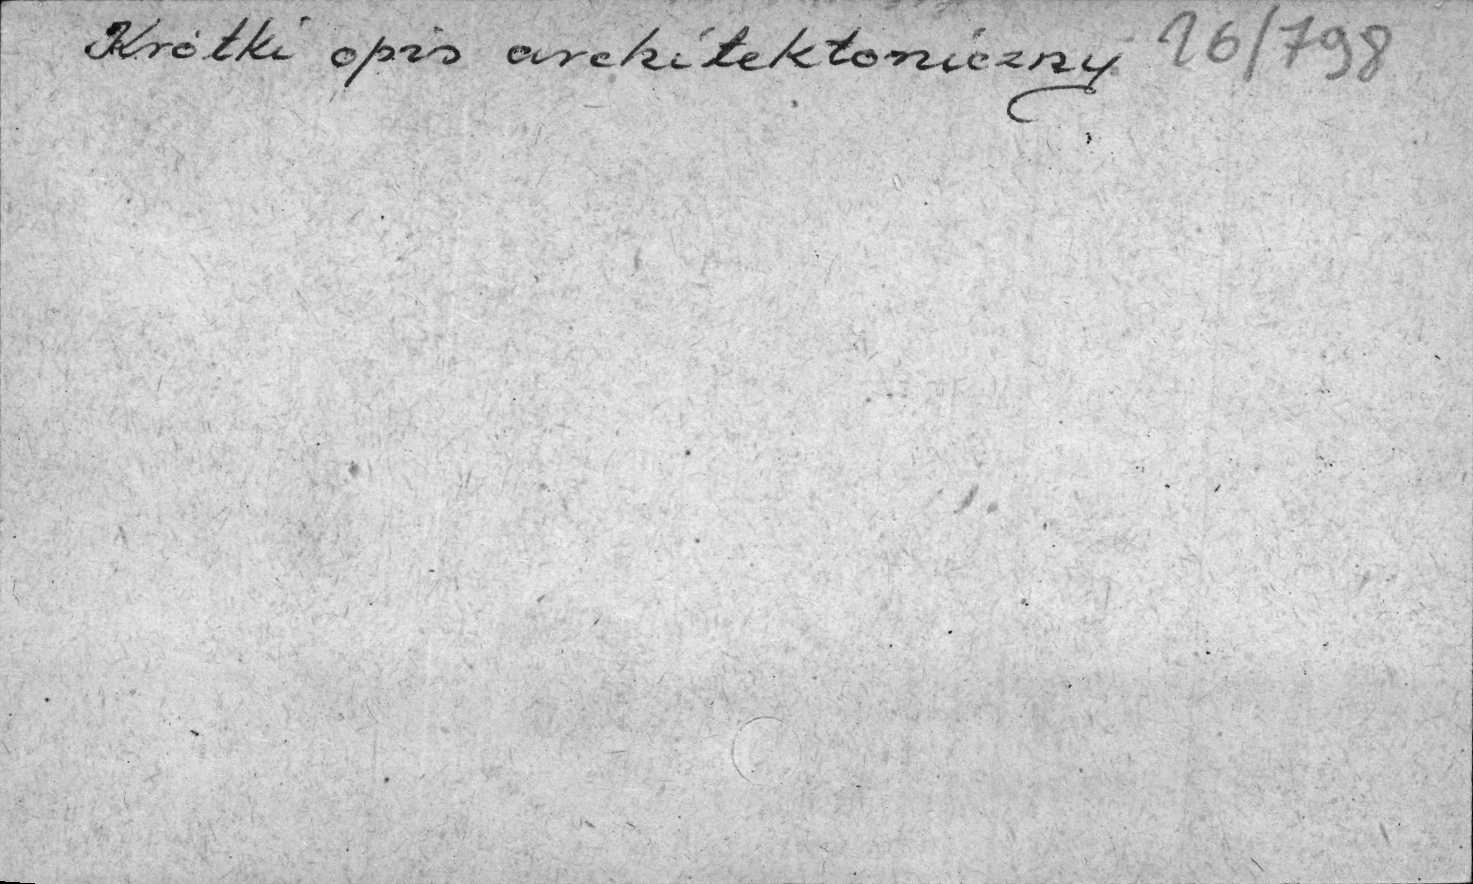 Krótki opis architektoniczny 16/798